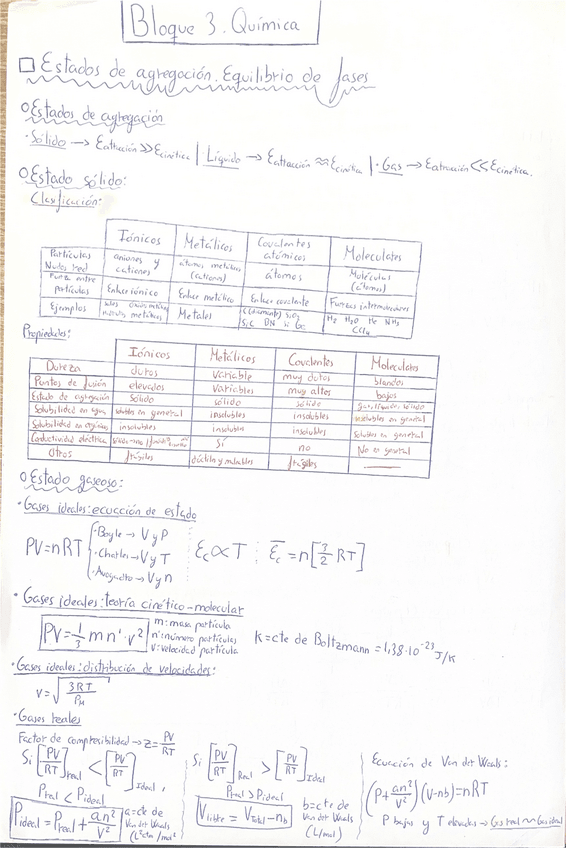 Bloque 3. Química
Estados de agregación. Equilibrio de fases
Estados de agregación
· Sólido → Eatracción >> Ecinética | · Líquido → Eatracción ≈ Ecinética | · Gas → Eatracción << Ecinética.
Estado sólido:
Clasificación:
Iónicos Metálicos Covalentes atómicos Moleculares
Partículas Nudos Red aniones y cationes átomos metálicos (cationes) átomos Moléculas (átomos)
Fuerza entre partículas Enlace iónico Enlace metálico Enlace covalente Fuerzas intermoleculares
Ejemplos metálicos Metales C(diamante) SiO2 SiC BN Si Ge H2 H2O He NH3 CCl4
Propiedades:
Iónicos Metálicos Covalentes Moleculares
Dureza duros variable muy duros blandos
Puntos de fusión elevados variables muy altos bajos
Estado de agregación sólido sólido sólido gas, líquido, sólido
Solubilidad en agua solubles en general insolubles insolubles insolubles en general
Solubilidad en orgánicos insolubles insolubles insolubles solubles en general
Conductividad eléctrica sí no No en general
Otros frágiles dúctiles y maleables frágiles ———
Estado gaseoso:
· Gases ideales: ecuación de estado
PV=nRT { · Boyle → V y P
· Charles → V y T
· Avogadro → V y n
Ec ∝ T Ec = n[3/2 RT]
· Gases ideales: teoría cinético-molecular
PV = 1/3 m n' · v²
m: masa partícula
n': número partículas
v: velocidad partícula
K = cte de Boltzmann = 1,38·10⁻²³ J/K
· Gases ideales: distribución de velocidades:
v = √(3RT/PM)
· Gases reales
Factor de compresibilidad → z = PV/RT
Si [PV/RT]real < [PV/RT]Ideal,
Preal < Pideal
Pideal = Preal + an²/V²
a=cte de Van der Waals (L²atm/mol²
Si [PV/RT]Real > [PV/RT]Ideal
Preal > Pideal
Vlibre = Vtotal - nb
b=cte de Van der Waals (L/mol)
Ecuación de Van der Waals:
(P + an²/V²)(V-nb)=nRT
P bajas y T elevadas → Gas real ≈ Gas ideal